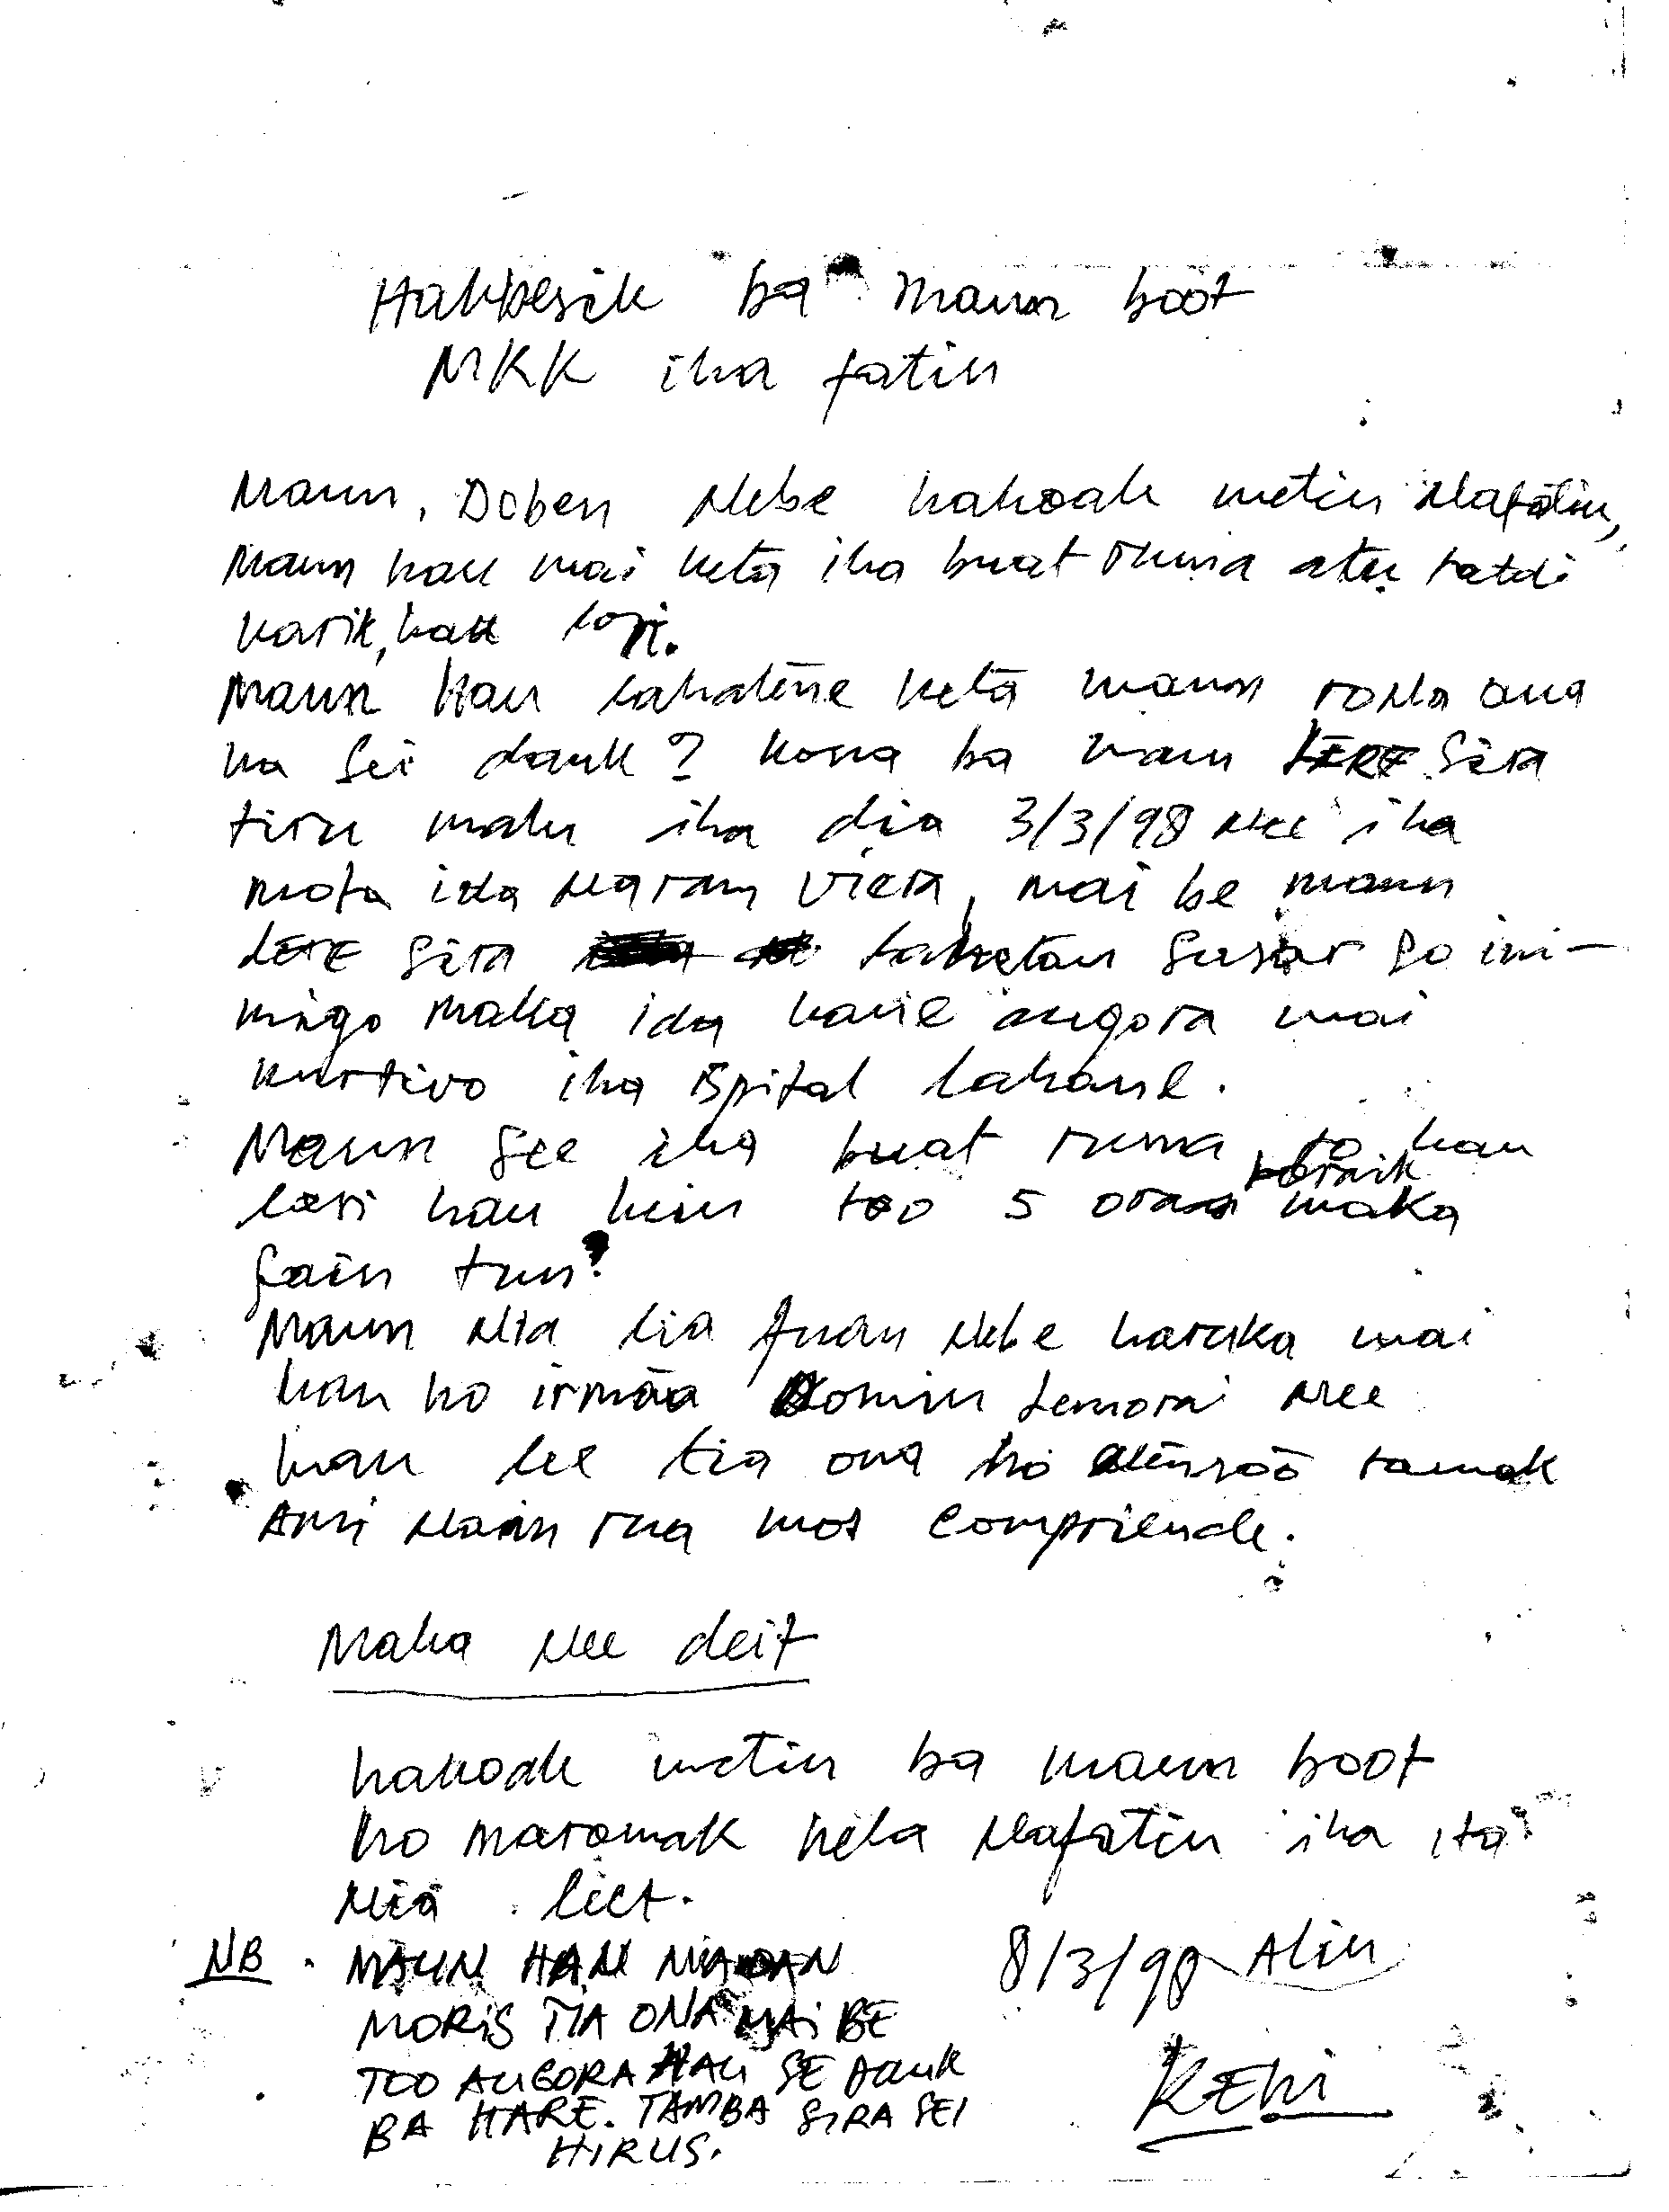 Hakbesik ba Maun boot
MKK iha fatin
Maun, Doben Nebe hakoak metin Nafatin,
Maun hau mai ketā iha buat ruma atu tatdi
karik, hau lori.
Maun Hau lahatēne ketā maun rona ona
ka sei dauk? Kona ba maun LERE sira
tiru malu iha dia 3/3/98 Nee iha
mota ida Naran Viera, mai be maun
LERE sira lahetan susar so ini-
migo maka ida kanek angora mai
kurtivo iha ispital lahane.
Maun see iha buat ruma to hau
lori hau hein too 5 oras loraik maka
sain tun?
Maun Nia lia fuan Nebe haruka mai
hau ho irmāa Domin Lemorai Nee
hau lee tia ona ho atēnsāō tamak
Ami Nain rua mos compriende.
Maka Nee deit
hakoak metin ba maun boot
ho maromak hela Nafatin iha ita
Nia let.
NB. MAUN HAU NIA OAN
MORIS TIA ONA MAI BE
TOO AUGORA HAU SE dauk
BA HARE. TAMBA SIRA SEI
HIRUS.
8/3/98 Alin
KEHI